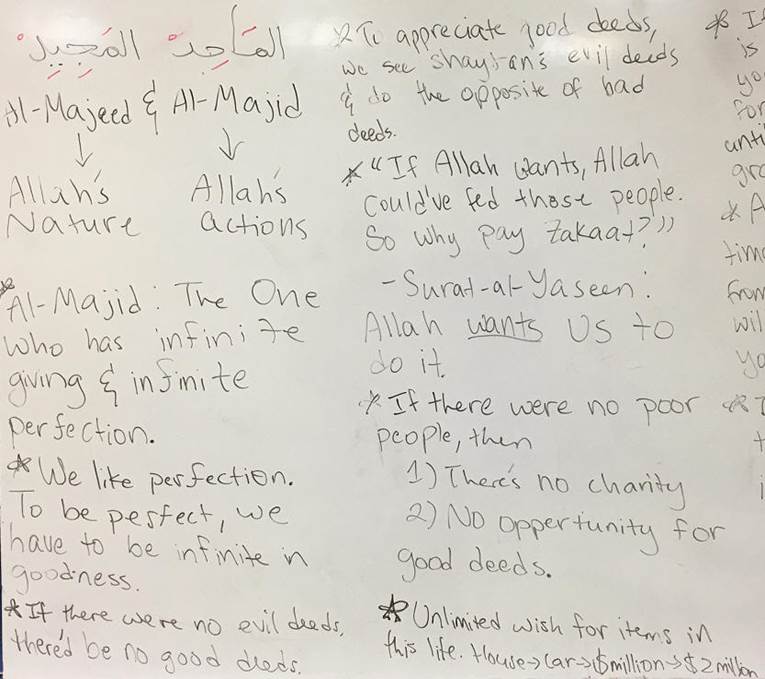 المَاجِدُ المَجِيدُ
Al-Majeed & Al-Majid
↓ ↓
Allah's Allah's
Nature actions
* Al-Majid: The One
who has infinite
giving & infinite
perfection.
* We like perfection.
To be perfect, we
have to be infinite in
goodness.
* If there were no evil deeds,
there'd be no good deeds.
* To appreciate good deeds,
we see shaytan's evil deeds
& do the opposite of bad
deeds.
* "If Allah wants, Allah
could've fed those people.
So why pay Zakaat?"
- Surat-al-Yaseen:
Allah wants us to
do it.
* If there were no poor
people, then
1) There's no charity
2) No oppertunity for
good deeds.
* Unlimited wish for items in
this life. House→Car→$million→$2 million
* I
is
yo
for
unti
gra
* A
time
from
wil
yo
*
t
i